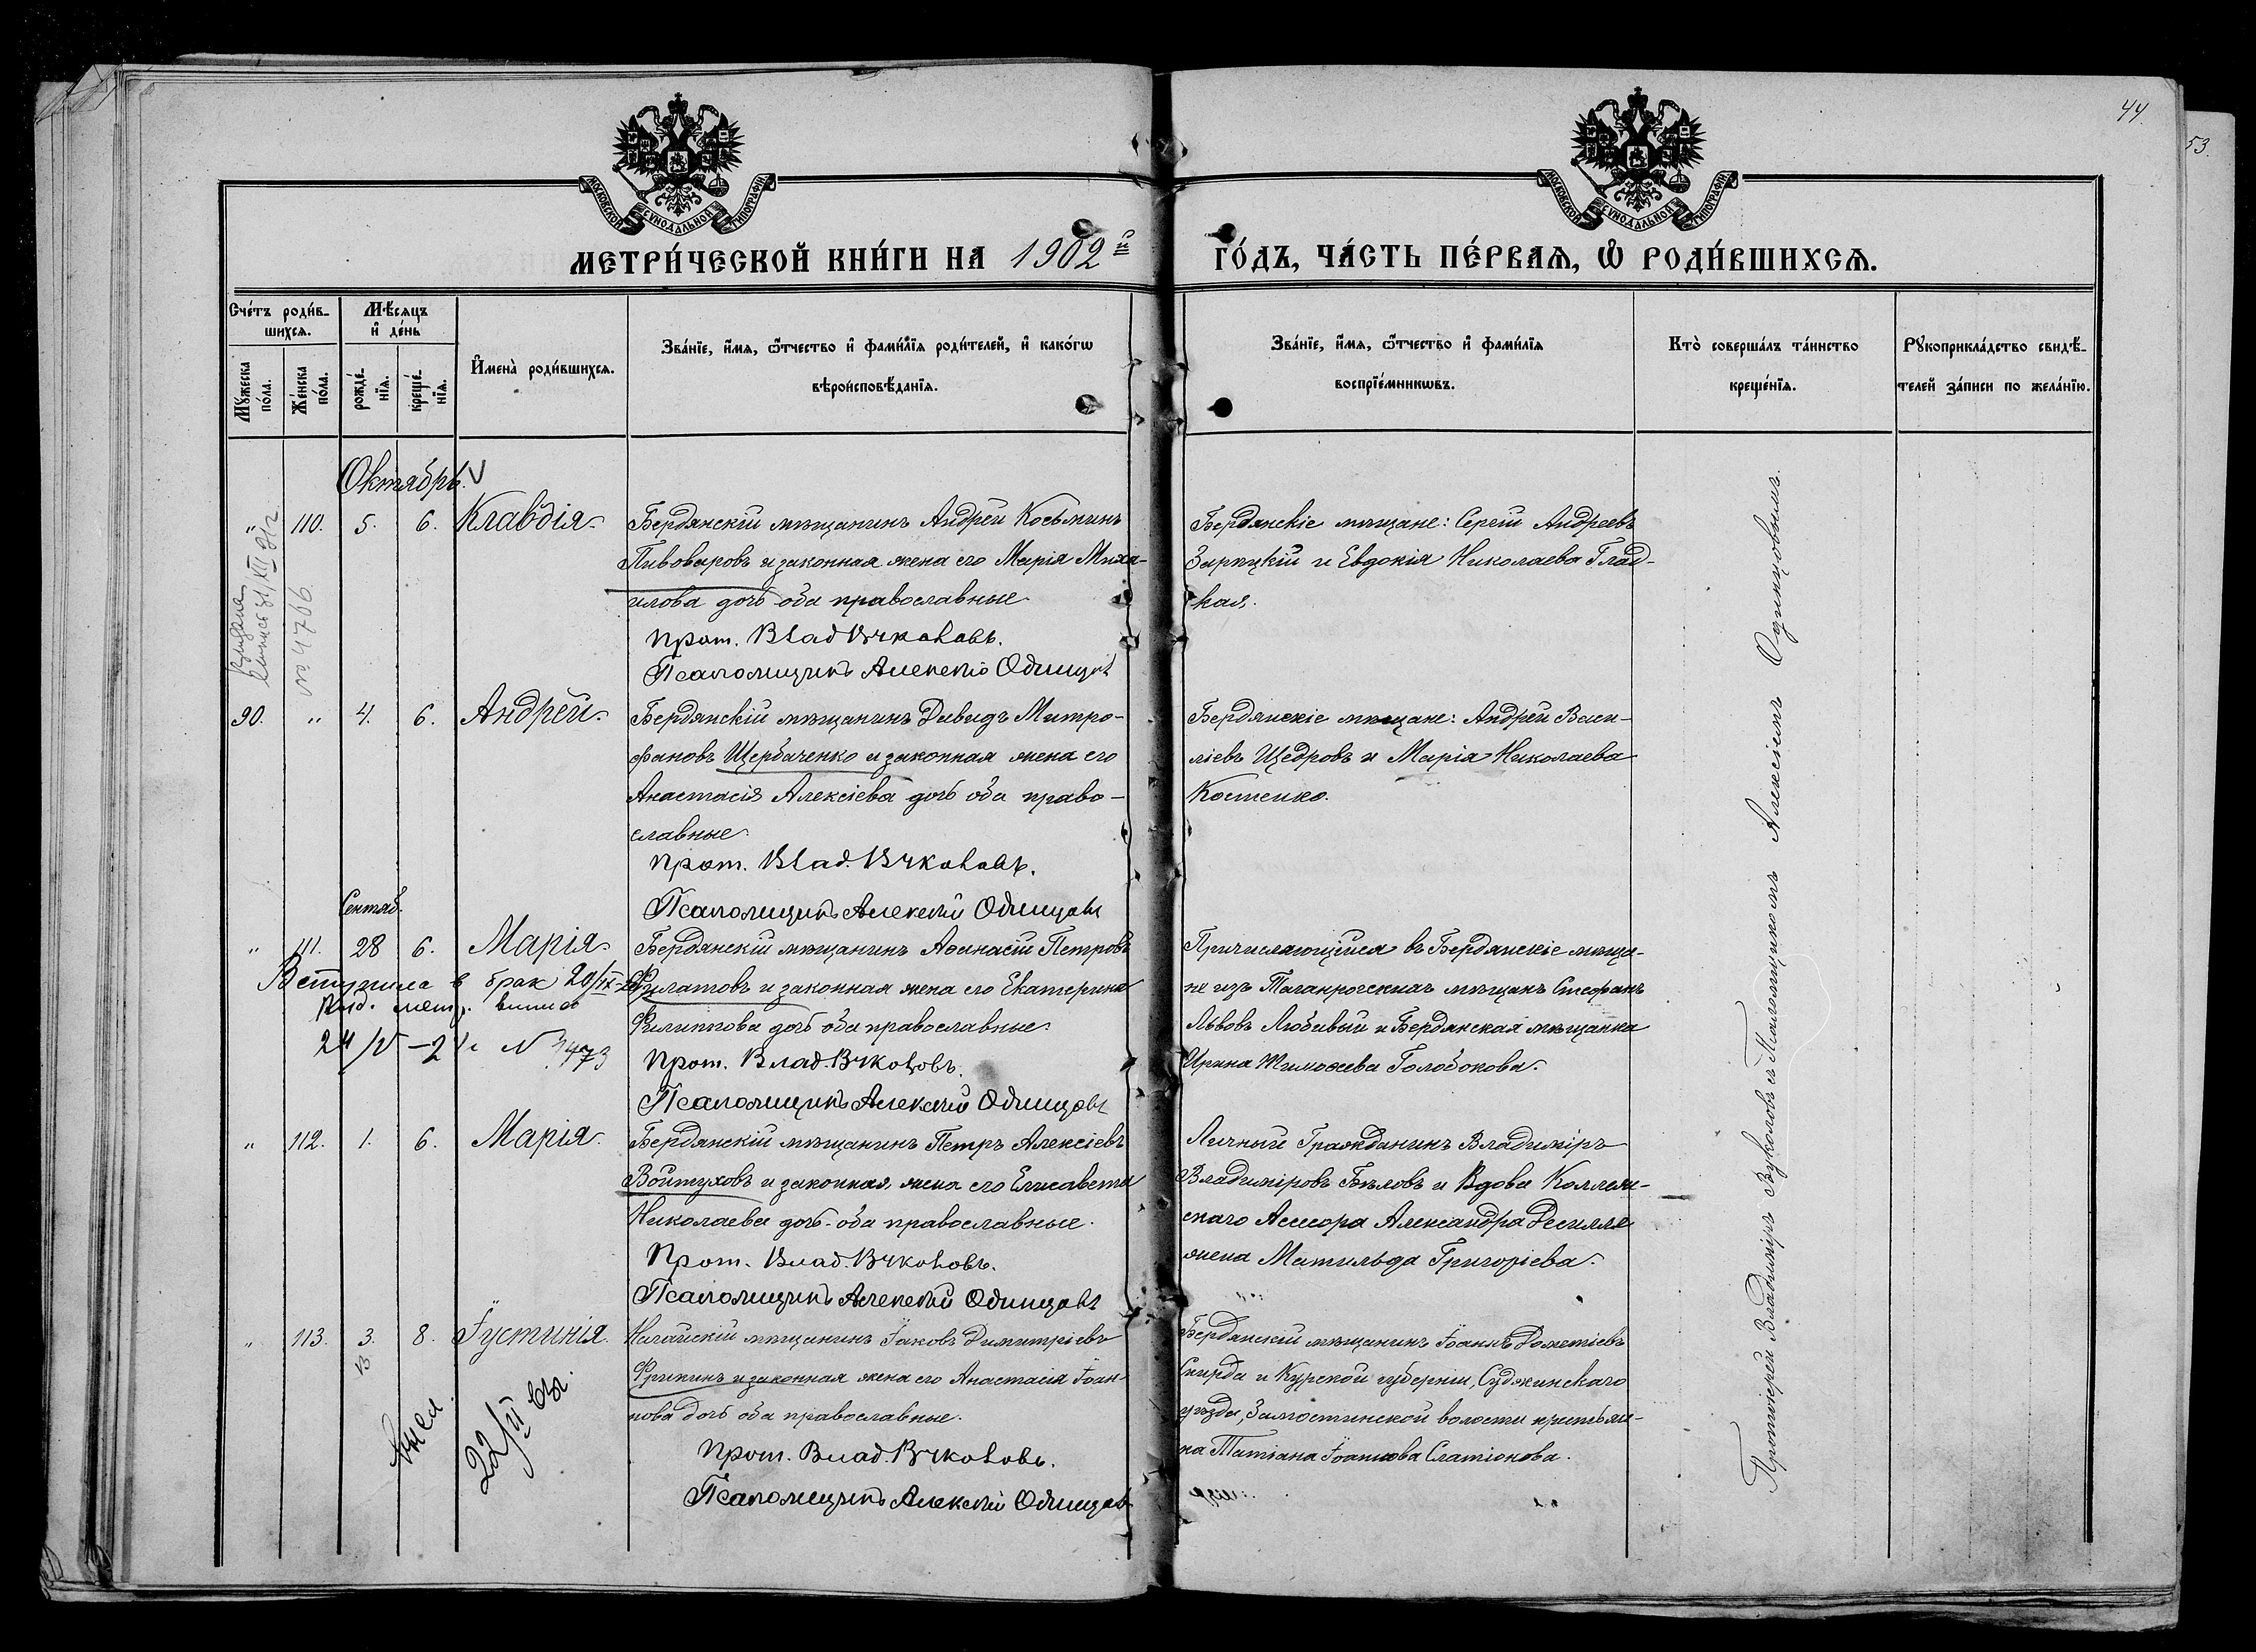 44
53.
МОСКОВСКОЙ СѴНОДАЛЬНОЙ ТИПОГРАФІИ
МОСКОВСКОЙ СѴНОДАЛЬНОЙ ТИПОГРАФІИ
МЕТРИ́ЧЕСКОЙ КНИ́ГИ НА 1902й ГО́ДЪ, ЧА́СТЬ ПЕ́РВАѦ, Ѡ҆ РОДИ́ВШИХСѦ.
Сче́тъ роди́в-
шихсѧ.
Мꙋжеска по́ла.
Же́нска по́ла.
Мѣ́сѧцъ и҆ де́нь
рожде́-нїѧ.
креще́-нїѧ.
И҆мена̀ роди́вшихсѧ.
Зва́нїе, и҆́мѧ, ѻ҆́тчество и҆ фами́лїѧ роди́телей, и҆ како́гѡ
вѣроисповѣ́данїѧ.
Зва́нїе, и҆́мѧ, ѻ҆́тчество и҆ фами́лїѧ
воспрїе́мникѡвъ.
Кто̀ соверша́лъ та́инство
креще́нїѧ.
Рꙋкоприкла́дство свидѣ́-
телей за́писи по жела́нїю.
Октябрь.
„ 110. 5. 6. Клавдія.
Бердянскій мѣщанинъ Андрей Косьминъ
Пивоваровъ и законная жена его Марія Миха-
илова дочь оба православные.
Прот. Влад. Вуколовъ.
Псаломщикъ Алексѣй Одинцовъ
Бердянскіе мѣщане: Сергій Андреевъ
Зарицкій и Евдокія Николаева Глад-
кая.
№ 4706
90. „ 4. 6. Андрей.
Бердянскій мѣщанинъ Давидъ Митро-
фановъ Щербаченко и законная жена его
Анастасія Алексіева дочь оба право-
славные.
Прот. Влад. Вуколовъ.
Псаломщикъ Алексѣй Одинцовъ
Бердянскіе мѣщане: Андрей Васи-
ліевъ Щедровъ и Марія Николаева
Костенко.
Сентяб.
„ 111. 28 6. Марія.
Бердянскій мѣщанинъ Аѳанасій Петровъ
Филатовъ и законная жена его Екатерина
Филиппова дочь оба православные.
Прот. Влад. Вуколовъ.
Псаломщикъ Алексѣй Одинцовъ
Вступила в брак 20/IX
Выд. метр. выпись
24/V – 2 № 3473
Причисляющійся въ Бердянскіе мѣща-
не изъ Таганрогскихъ мѣщанъ Стефанъ
Львовъ Любивый и Бердянская мѣщанка
Ирина Тимоѳеева Голобокова.
„ 112. 1. 6. Марія.
Бердянскій мѣщанинъ Петръ Алексіевъ
Войтуховъ и законная жена его Елисавета
Николаева дочь оба православные.
Прот. Влад. Вуколовъ.
Псаломщикъ Алексѣй Одинцовъ
Личный Гражданинъ Владиміръ
Владиміровъ Бѣловъ и Вдова Коллеж-
скаго Ассесора Александра
жена Матильда Григоріева.
„ 113. 3. 8. Іустинія.
Ногайскій мѣщанинъ Іаковъ Димитріевъ
и законная жена его Анастасія Іоан-
нова дочь оба православные.
Прот. Влад. Вуколовъ.
Псаломщикъ Алексѣй Одинцовъ
Бердянскій мѣщанинъ Іоаннъ Дометіевъ
Скирда и Курской губерніи, Суджинскаго
уѣзда, Замостинской волости крестьян-
ка Татіана Іоаннова Слатіонова.
22/VI
Протоіерей Владиміръ Вуколовъ съ Псаломщикомъ Алексіемъ Одинцовымъ.